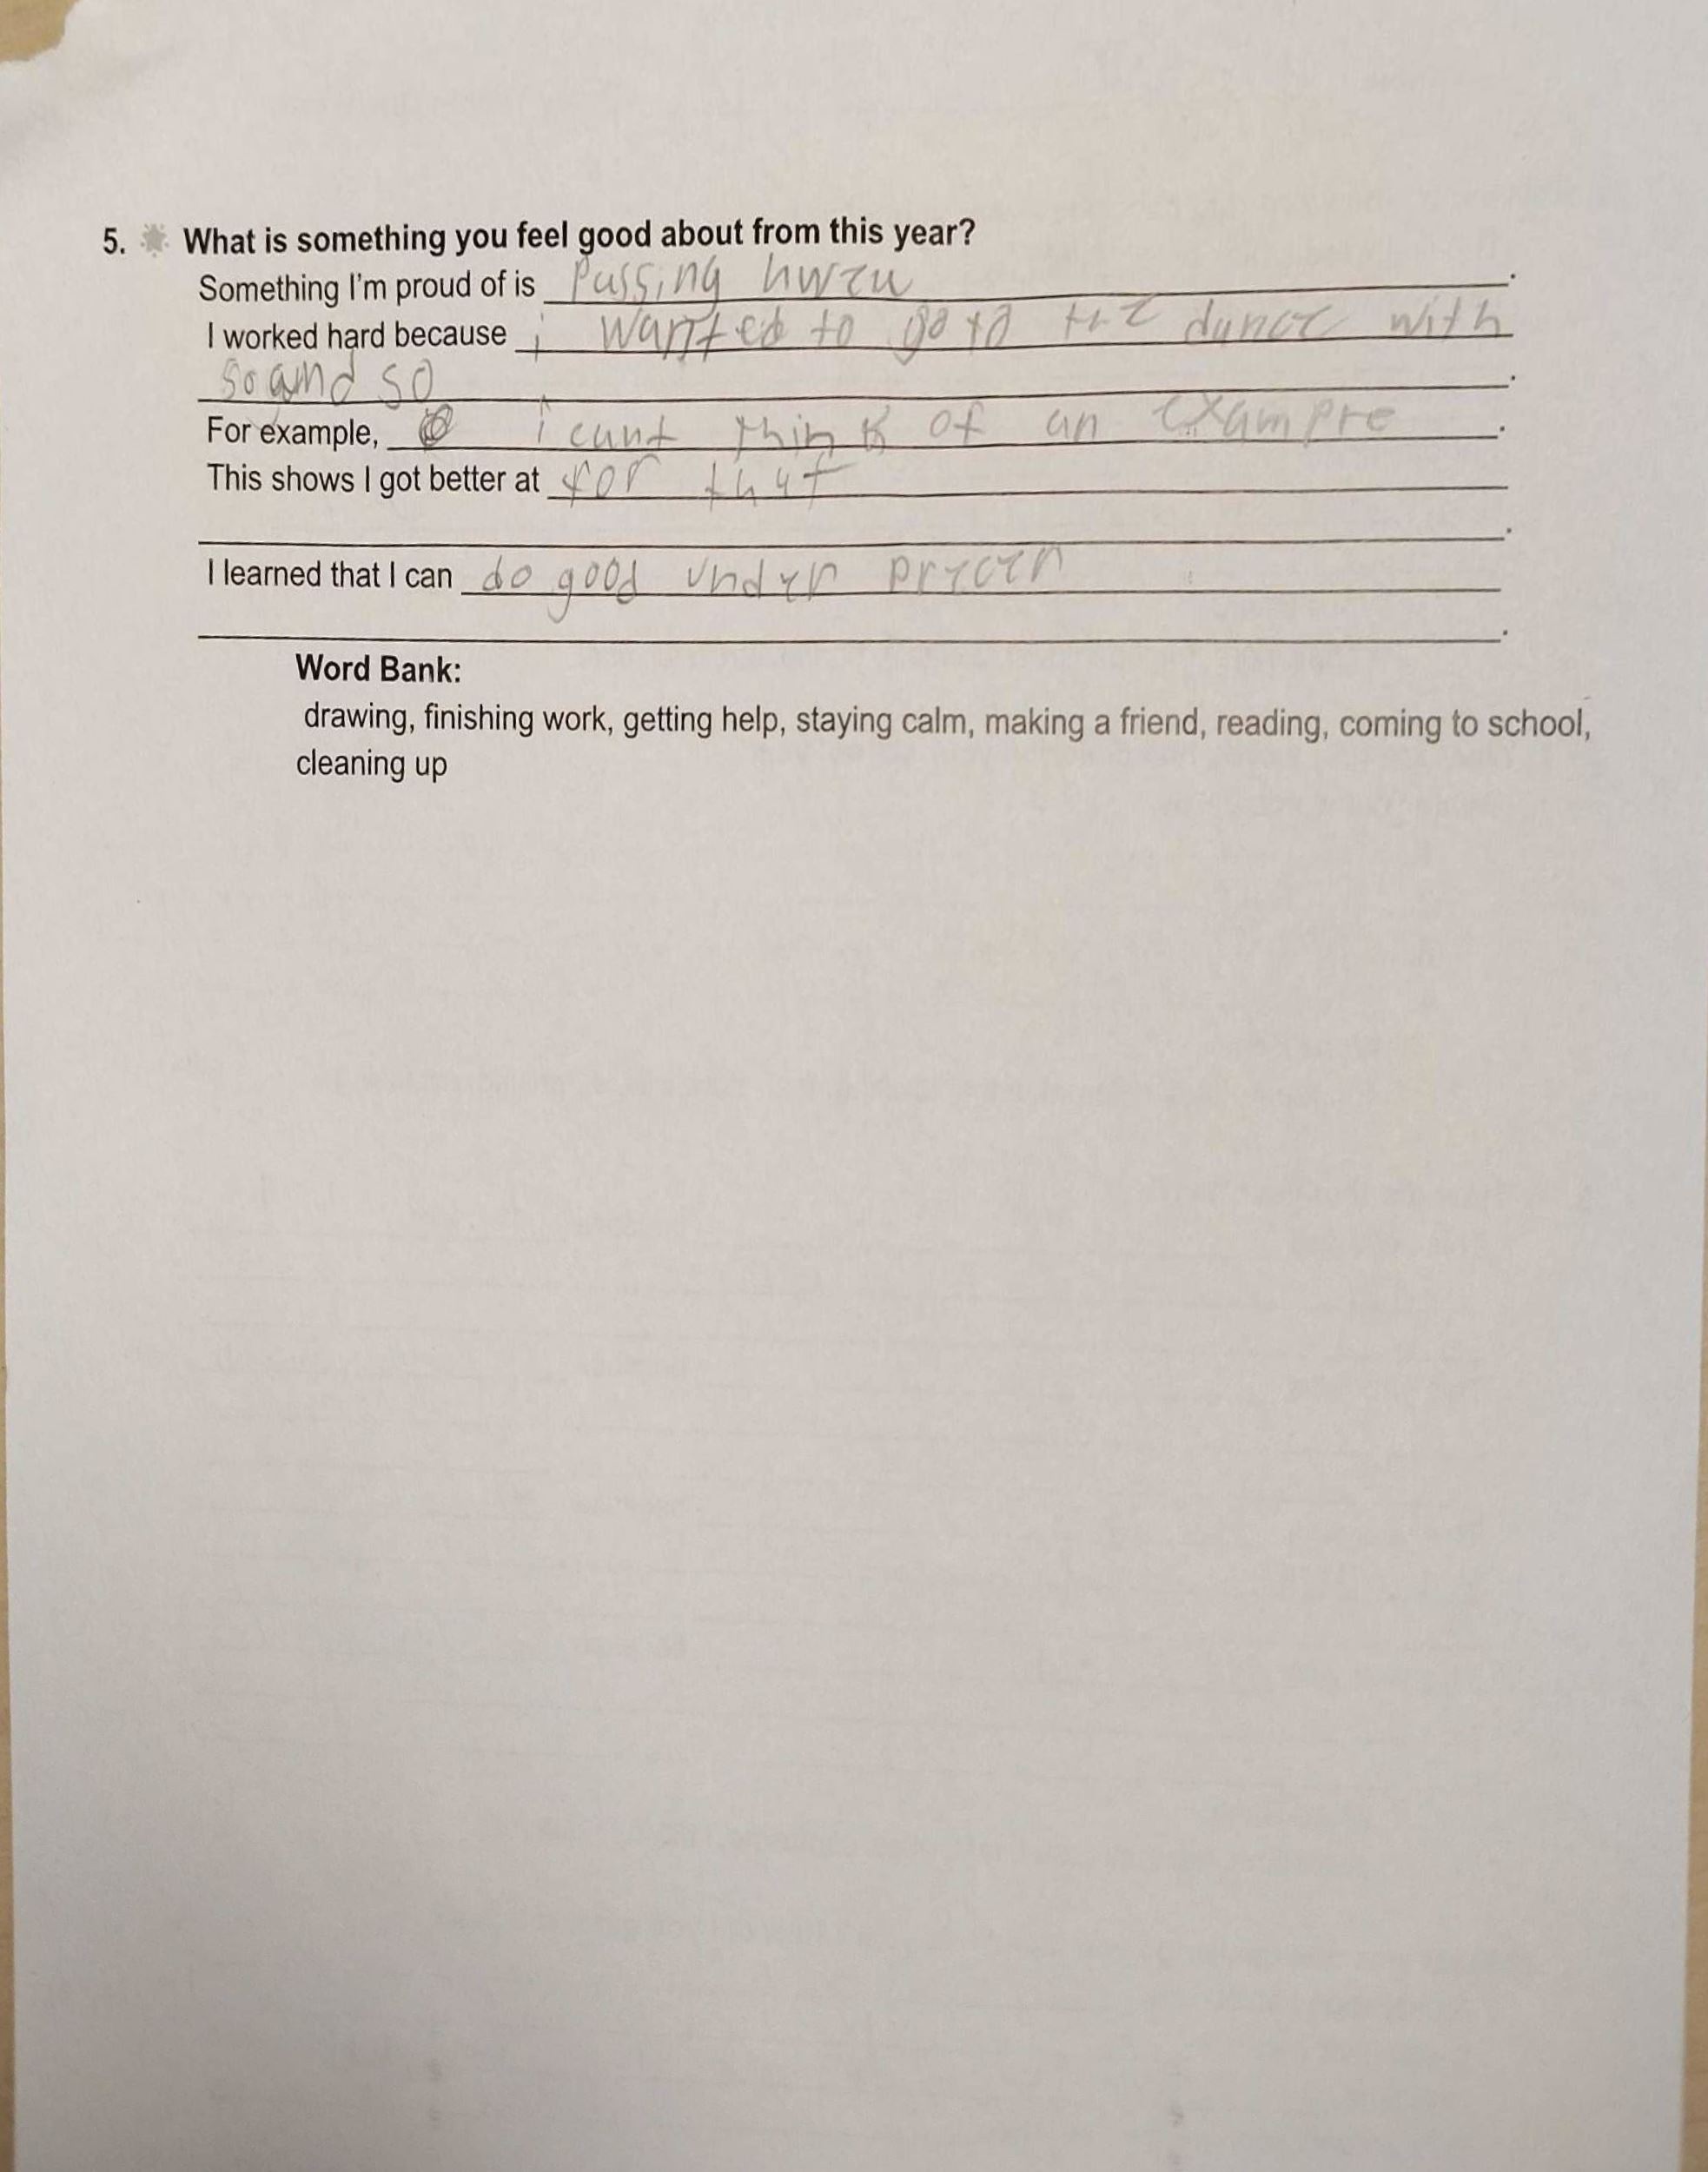 5. What is something you feel good about from this year?
Something I'm proud of is Passing .
I worked hard because i wanted to go to the dance with
so and so .
For example, i cant think of an exampre .
This shows I got better at for that
.
I learned that I can do good under
.
Word Bank:
drawing, finishing work, getting help, staying calm, making a friend, reading, coming to school,
cleaning up